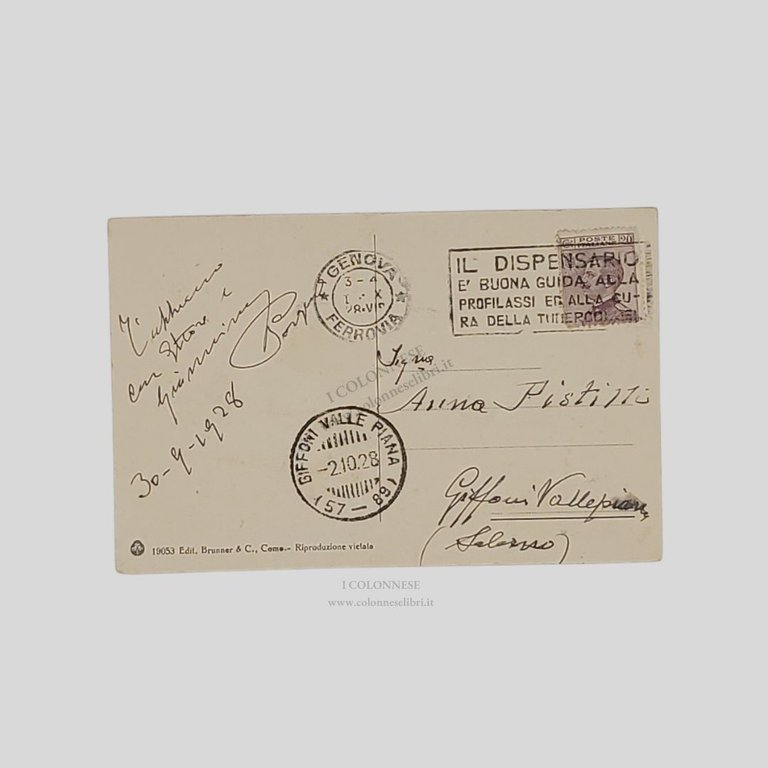 POSTE
ITALIANE
20
GENOVA
3-4
FERROVIA
IL DISPENSARIO
E' BUONA GUIDA ALLA
PROFILASSI ED ALLA CU-
RA DELLA TUBERCOLOSI
T'abbraccio
con Ettore e
Giannino
30-9-1928
Sigra
Anna Pistilli
Giffoni Vallepiana
(Salerno)
GIFFONI VALLE PIANA
-2.10.28
(57-89)
19053 Edit. Brunner & C., Como.- Riproduzione vietata
I COLONNESE
www.colonneselibri.it
I COLONNESE
www.colonneselibri.it